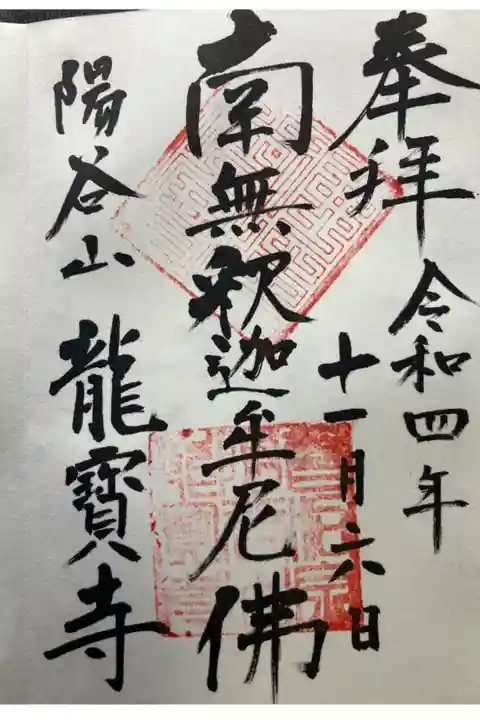 奉拝 令和四年
十一月六日
南無釈迦牟尼佛
陽谷山 龍寶寺